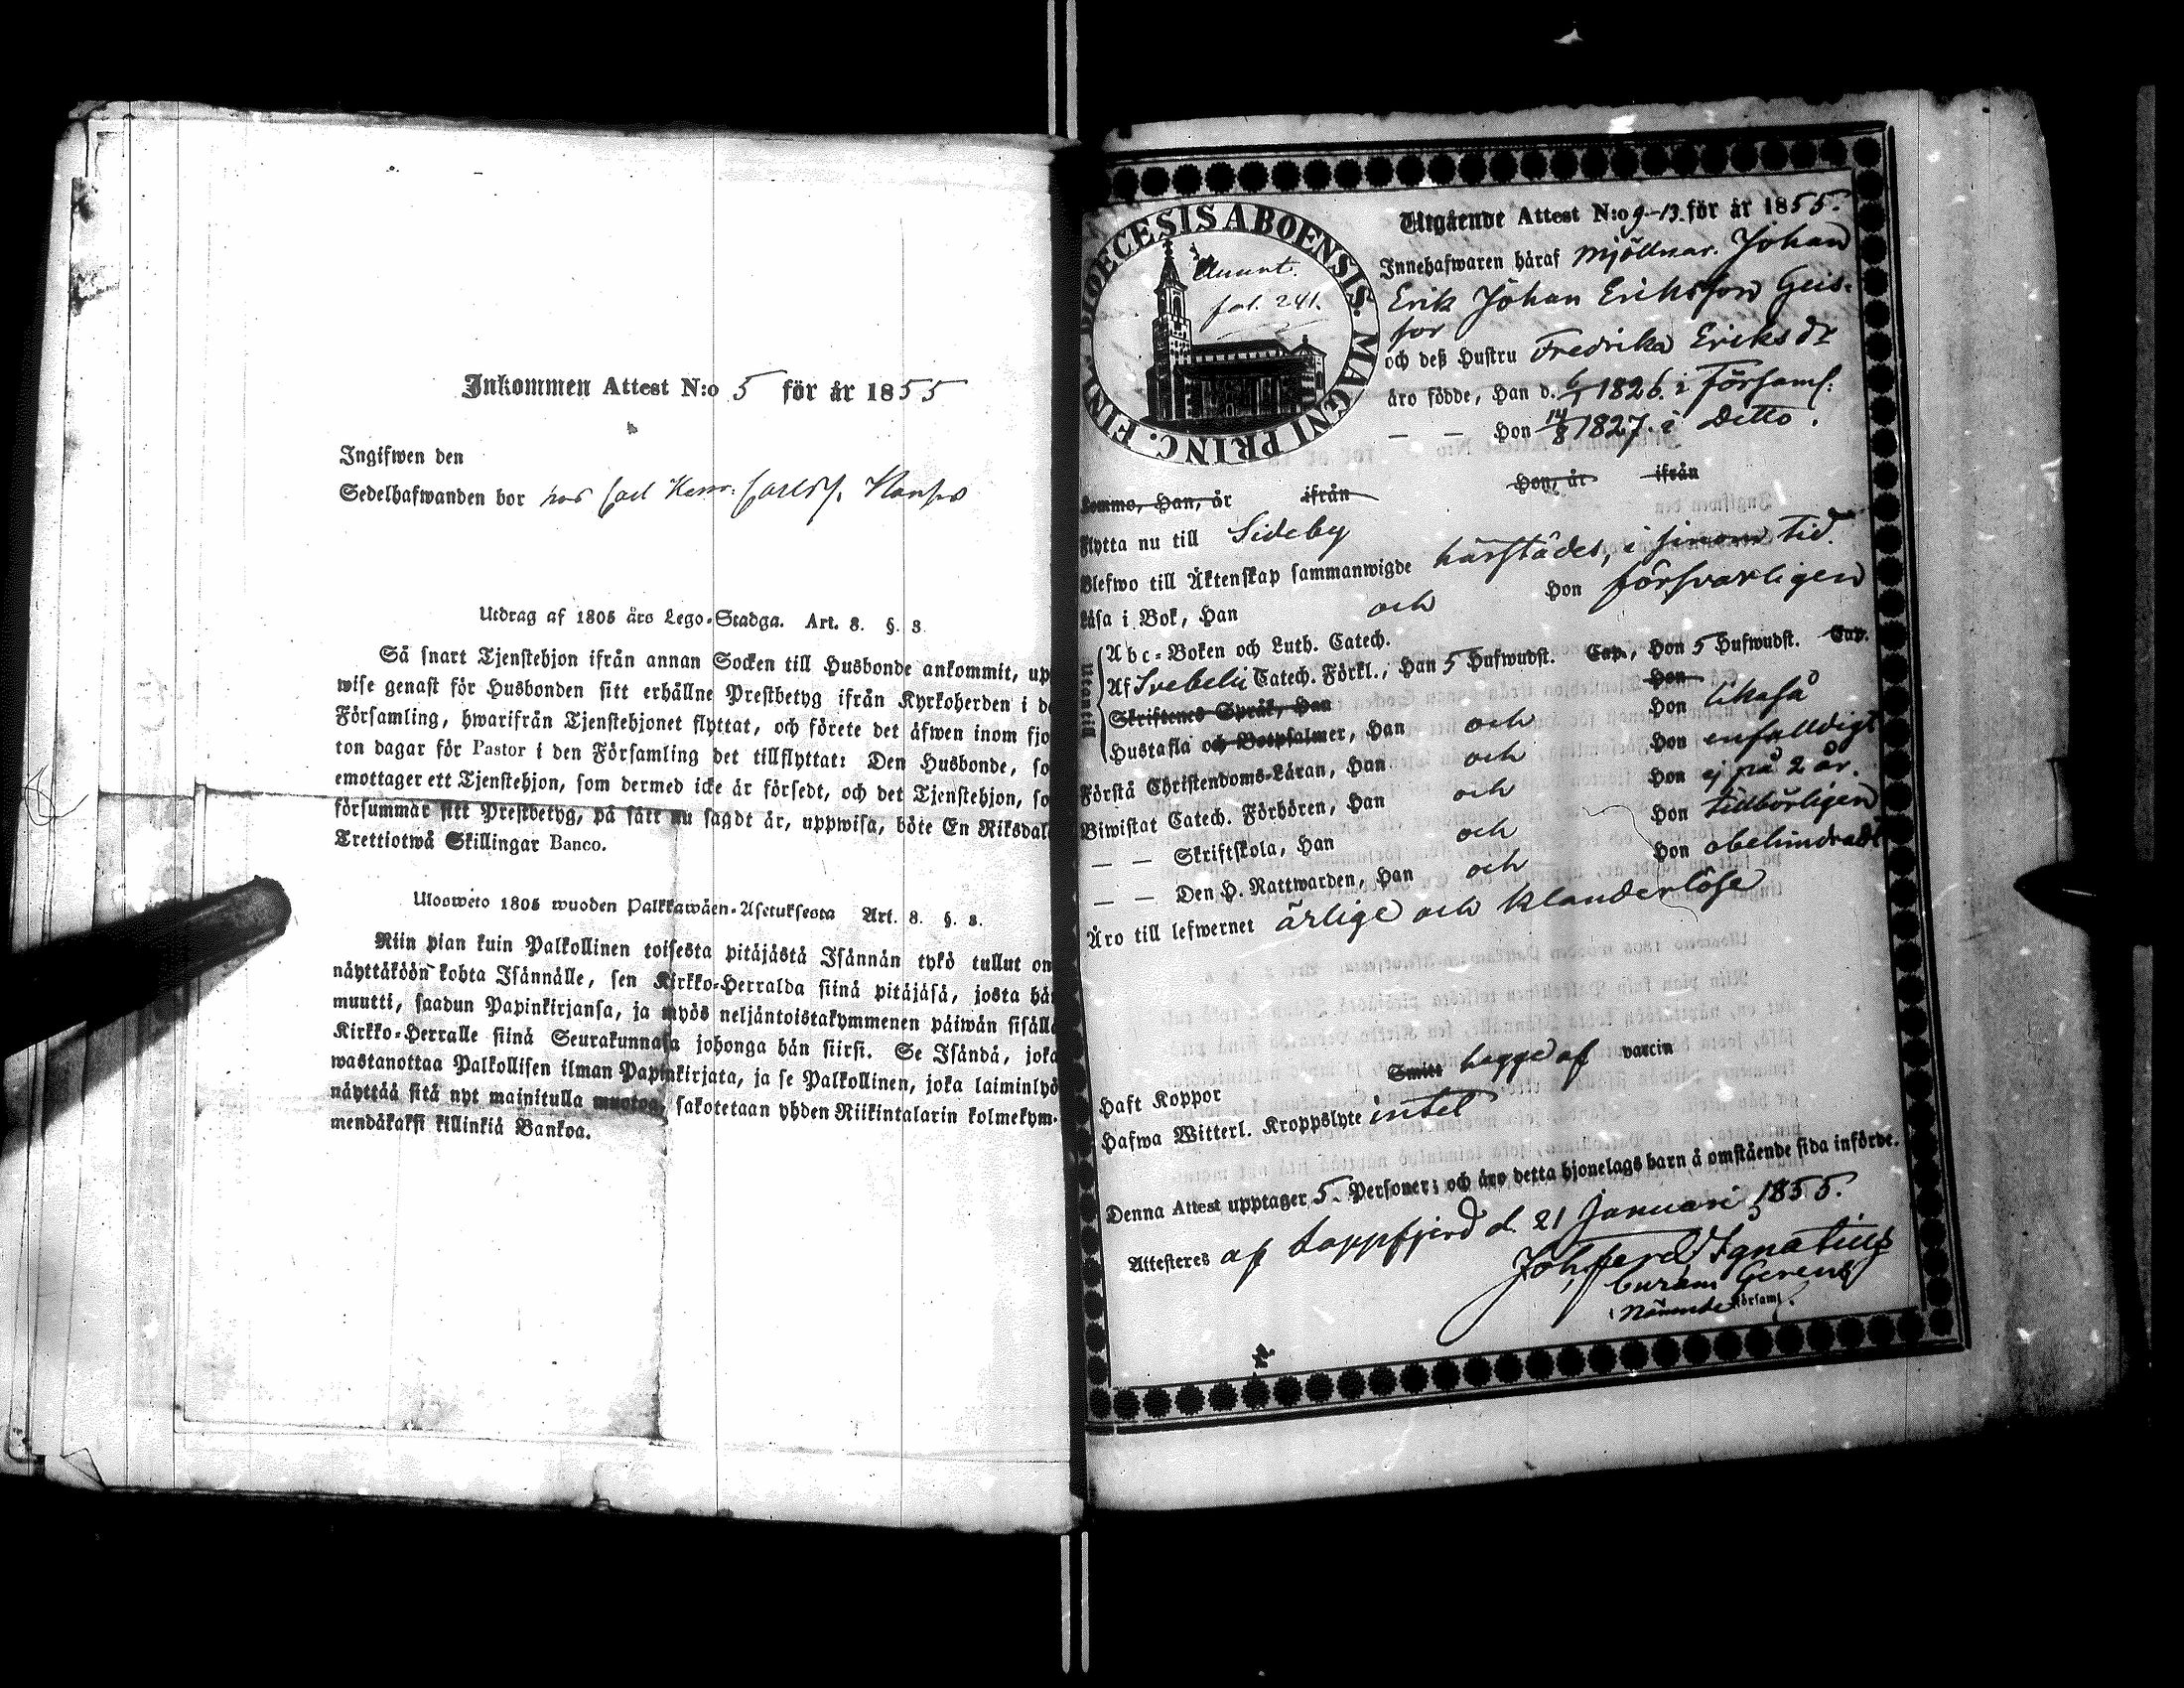 Inkommen Attest N:o 5 för år 1855
Ingifwen den
Sedelhafwanden bor hos
Utdrag af 1805 års Lego-Stadga. Art. 8. §. 3.
Så snart Tjenstehjon ifrån annan Socken till Husbonde ankommit, up
wise genast för Husbonden sitt erhållne Prestbetyg ifrån Kyrkoherden i d
Församling, hwarifrån Tjenstehjonet flyttat, och förete det äfwen inom fjo
ton dagar för Pastor i den Församling det tillflyttat: Den Husbonde, so
emottager ett Tjenstehjon, som dermed icke är försedt, och det Tjenstehjon, so
försummar sitt Prestbetyg, på sätt nu sagdt är, uppwisa, böte En Riksdal
Trettiotwå Skillingar Banco.
Ulosweto 1805 wuoden Palkkawäen-Asetuksesta Art. 8. §. 3.
Niin pian kuin Palkollinen toisesta pitäjästä Isännän tykö tullut on
näyttäköön kohta Isännälle, sen Kirkko-Herralda siinä pitäjäsä, josta hä
muutti, saadun Papinkirjansa, ja myös neljäntoistakymmenen päiwän sisällä
Kirkko-Herralle siinä Seurakunnasa johonga hän siirsi. Se Isändä, joka
wastanottaa Palkollisen ilman Papinkirjata, ja se Palkollinen, joka laiminlyö
näyttää sitä nyt mainitulla muotoa, sakotetaan yhden Riikintalarin kolmekym-
mendäkaksi killinkiä Bankoa.
DIOECESIS ABOENSIS. MAGNI PRINC. FINL.
fol. 241.
Utgående Attest N:o 9-13. för år 1855.
Innehafwaren häraf Mjölnar. Johan
Erik Johan Eriksson Geis-
for
och deß Hustru Fredrika Eriksdr
äro födde, Han d. 6/1 1826. i Församl:
— — Hon 14/8 1827. i Ditto.
Kommo, Han, år ifrån Hon, år ifrån
Flytta nu till Sideby
Blefwo till Äktenskap sammanwigde härstädes, i sinom tid.
Läsa i Bok, Han och Hon försvarligen
Utantill
Abc-Boken och Luth. Catech.
Af Svebelii Catech. Förkl., Han 5 Hufwudst. Cap., Hon 5 Hufwudst. Cap.
Skriftenes Språk, Han Hon
Hustafla och Botpsalmer, Han och Hon likaså
Förstå Christendoms-Läran, Han och Hon enfalldigt
Biwistat Catech. Förhören, Han och Hon ej på 2 år.
— — Skriftskola, Han och Hon tillbörligen
— — Den H. Nattwarden, Han och Hon obehindradt
Äro till lefwernet ärlige och klanderlöse
Haft Koppor Smitt begge af vaccin
Hafwa Witterl. Kroppslyte intet
Denna Attest upptager 5. Personer; och äro detta hjonelags barn å omstående sida införde.
Attesteres af Lappfjerd d. 21 Januari 1855.
Joh. Ferd. Ignatius
Curam Gerens
i Nämnde Församl.